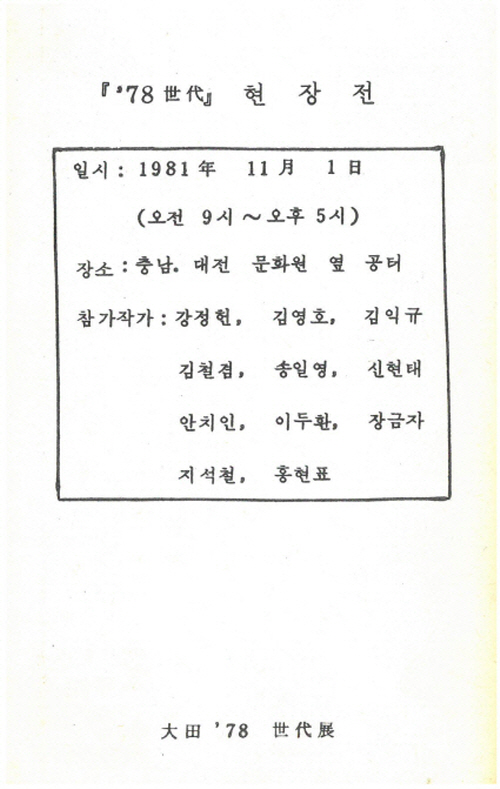 『'78 世代』 현 장 전
일시 : 1981年 11月 1日
(오전 9시 ~ 오후 5시)
장소 : 충남. 대전 문화원 옆 공터
참가작가 : 강정헌, 김영호, 김익규
김철겸, 송일영, 신현태
안치인, 이두환, 장금자
지석철, 홍현표
大田 '78 世代展